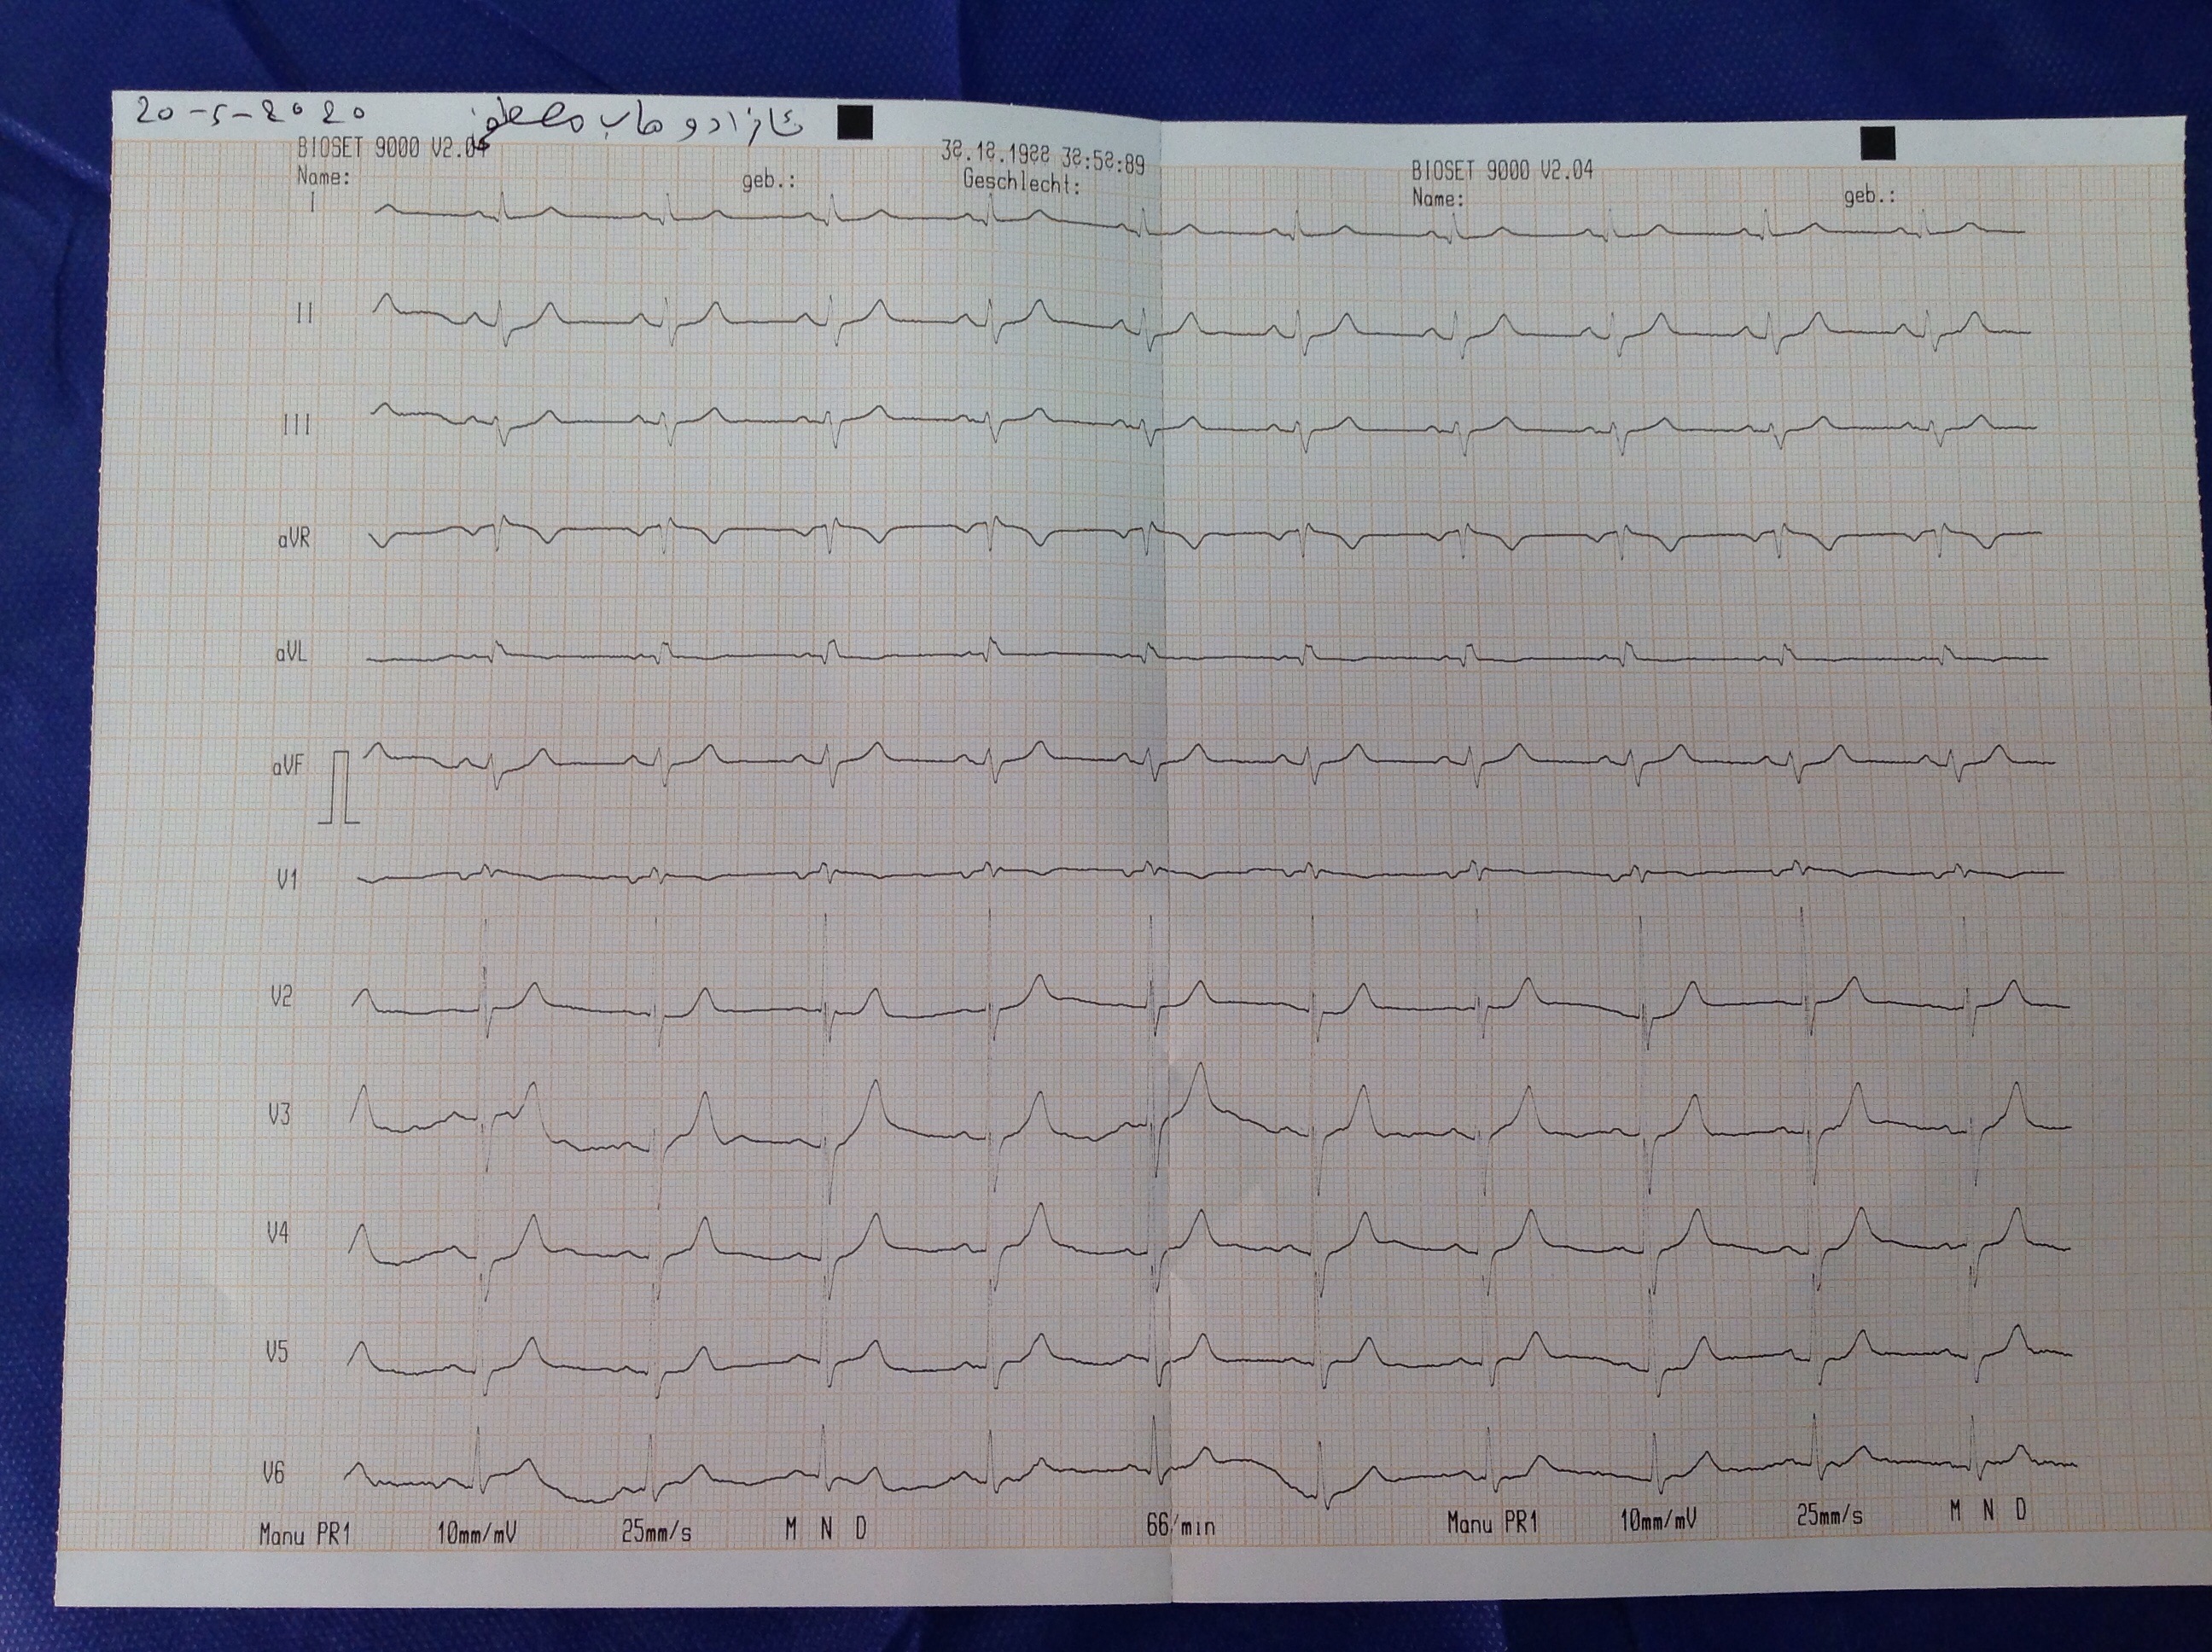 20-5-2020 ئازاد وهاب مصطفى
BIOSET 9000 V2.04
Name:
geb.:
Geschlecht:
BIOSET 9000 V2.04
Name:
geb.:
I
II
III
aVR
aVL
aVF
V1
V2
V3
V4
V5
V6
Manu PR1 10mm/mV 25mm/s M N D 66/min Manu PR1 10mm/mV 25mm/s M N D